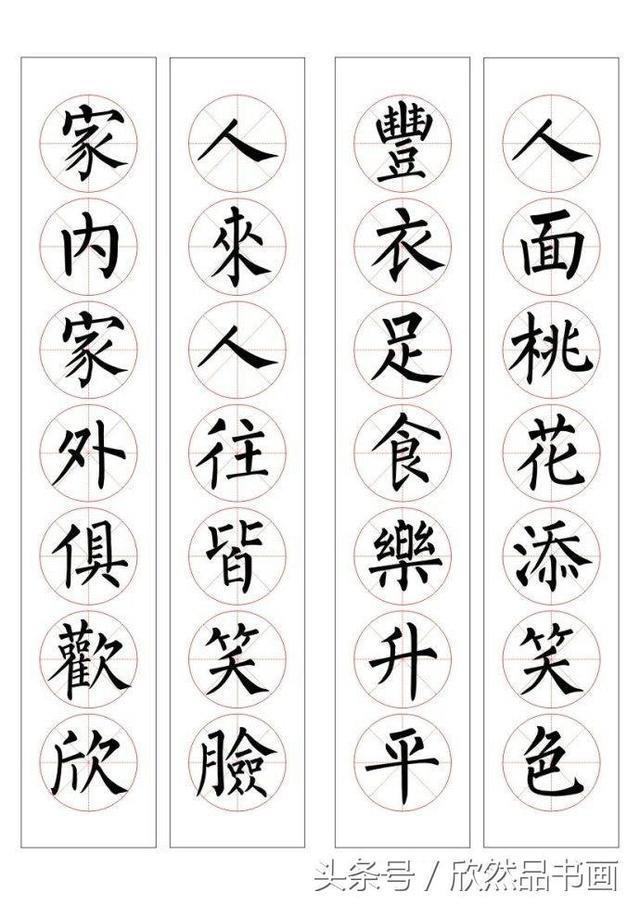 人面桃花添笑色
豐衣足食樂升平
人來人往皆笑臉
家内家外俱歡欣
头条号 / 欣然品书画